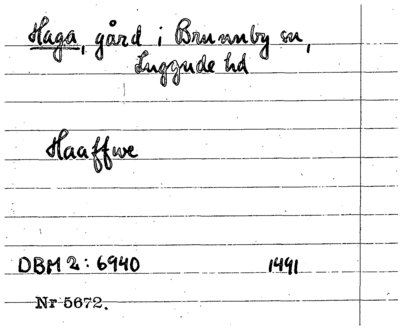 Haga, gård i Brunnby sn,
Luggude hd
Haaffwe
DBM 2: 6940 1441
Nr 5672.